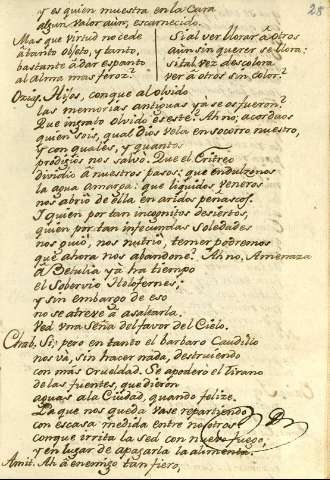 28
y es quien muestra en la Cara
algun valor aún, escarnecido.
Mas que virtud no cede
â tanto objeto, y tanto,
bastante à dar espanto
al alma mas feroz?
Si al ver llorar à otros
aún sin querer se llora:
si tal vez descolora
ver à otros sin color?
Ozias. Hijos, conque al olvido
las memorias antiguas yà se os fueron?
Que ingrato olvido es este? Ah no; acordaos
quien sois, qual dios vela en socorro nuestro,
y con quales, y quantos
prodigios nos salvò. Que el Eritreo
dividiò a nuestros pasos: que endulzò nos
la agua amarga: que liquidos veneros
nos abriò de ella en aridos peñascos.
I quien por tan incognitos desiertos,
quien por tan infecundas soledades
nos guiò, nos nutriò, temer podremos
que ahora nos abandone? Ah no. Amenaza
à Betulia yà ha tiempo
el Sobervio Holofernes;
y sin embargo de eso
no se atreve à asaltarla.
Ved una seña del favor del Cielo.
Chab. Si; pero en tanto el barbaro Caudillo
nos và, sin hacer nada, destruiendo
con más crueldad. Se apoderò el tirano
de las fuentes, que dieron
aguas a la Ciudad, quando felize.
La que nos queda va se repartiendo
con escasa medida entre nosotros
conque irrita la sed con nuevo fuego,
y en lugar de apagarla la alimenta.
Amit. Ah à enemigo tan fiero,